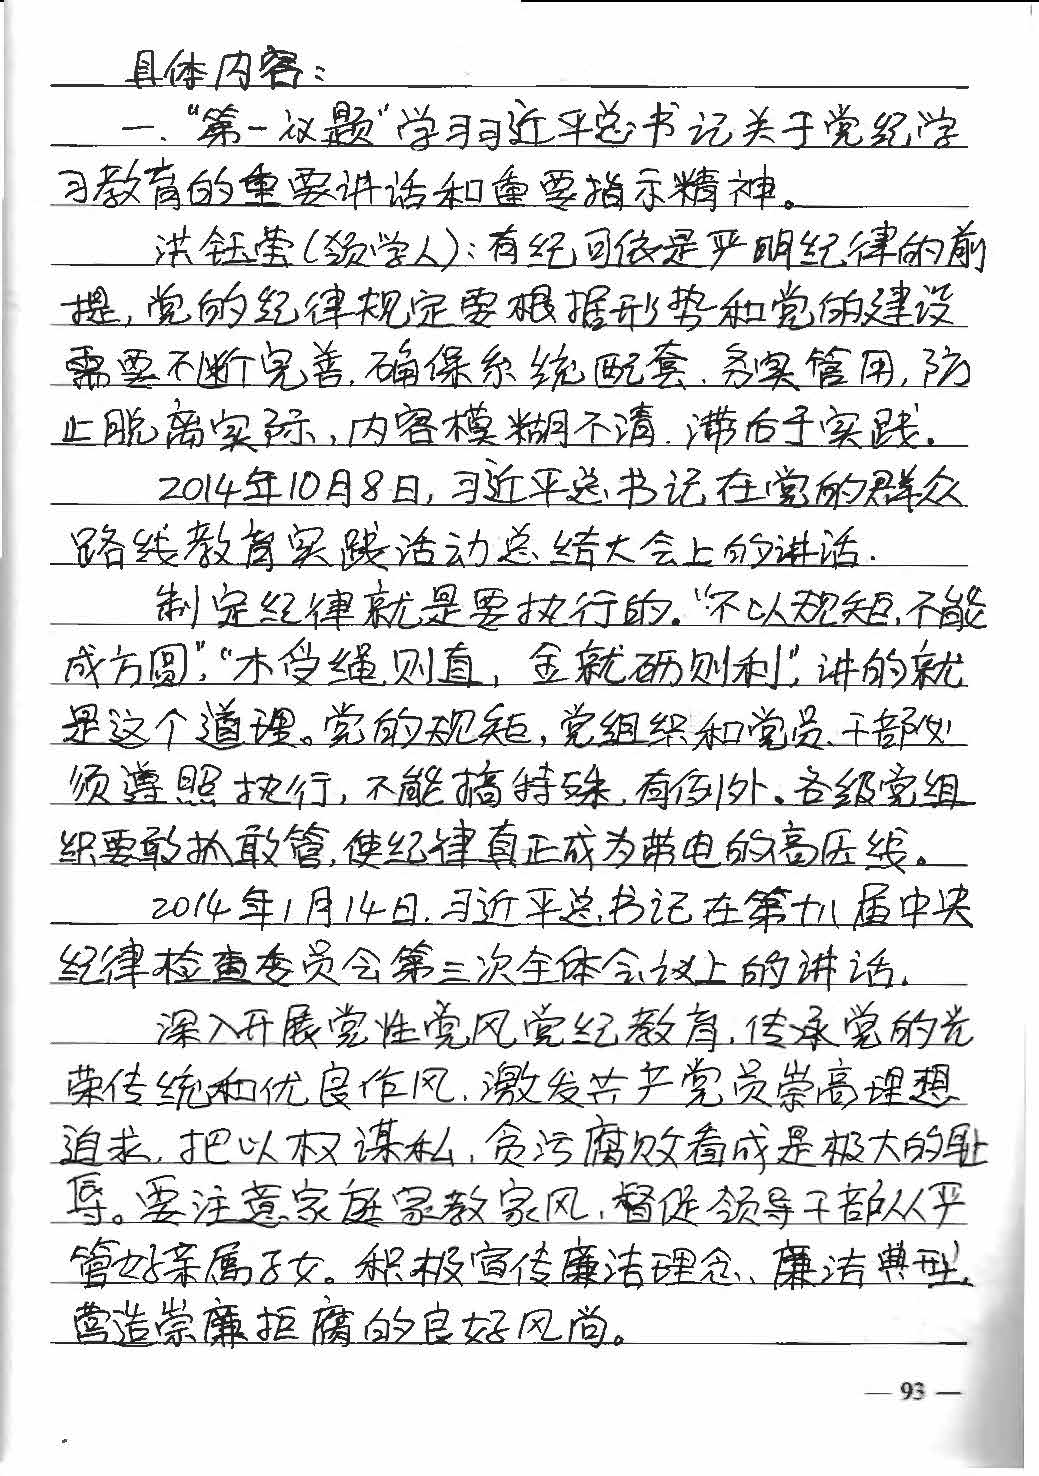 具体内容：
一、“第一议题”学习习近平总书记关于党纪学
习教育的重要讲话和重要指示精神。
洪钰莹（领学人）：有纪可依是严明纪律的前
提，党的纪律规定要根据形势和党的建设
需要不断完善，确保系统配套、务实管用，防
止脱离实际、内容模糊不清、滞后于实践。
2014年10月8日，习近平总书记在党的群众
路线教育实践活动总结大会上的讲话.
制定纪律就是要执行的。“不以规矩，不能
成方圆”，“木受绳则直，金就砺则利”，讲的就
是这个道理。党的规矩，党组织和党员、干部必
须遵照执行，不能搞特殊、有例外。各级党组
织要敢抓敢管，使纪律真正成为带电的高压线。
2014年1月14日，习近平总书记在第十八届中央
纪律检查委员会第三次全体会议上的讲话.
深入开展党性党风党纪教育，传承党的光
荣传统和优良作风，激发共产党员崇高理想
追求，把以权谋私、贪污腐败看成是极大的耻
辱。要注意家庭家教家风，督促领导干部从严
管好亲属子女。积极宣传廉洁理念、廉洁典型，
营造崇廉拒腐的良好风尚。
— 93 —